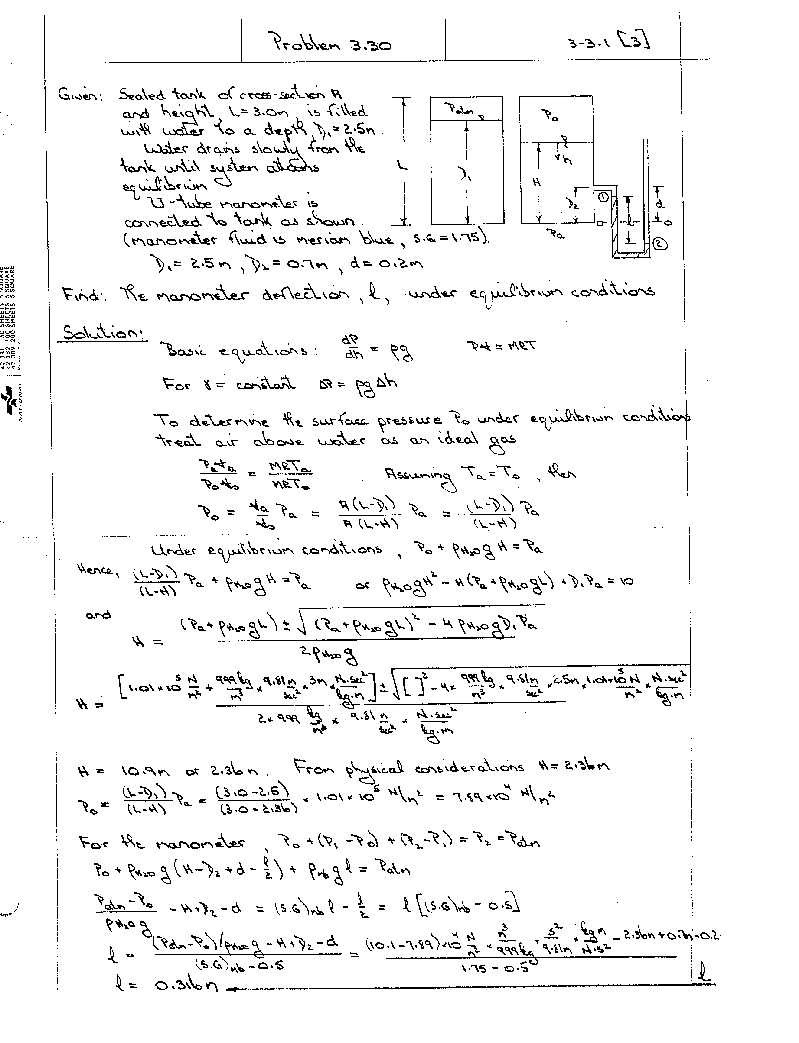 Problem 3.30
3-3.1 [3]
Given: Sealed tank of cross-section A
and height, L=3.0m, is filled
with water to a depth D₁=2.5m.
Water drains slowly from the
tank until system attains
equilibrium
U-tube manometer is
connected to tank as shown.
(manometer fluid is merian blue, S.G=1.75).
D₁= 2.5m, D₂=0.7m, d=0.2m
Patm
P₀
L
D₁
H
D₂
①
l
d
0
Pa
②
Find: The manometer deflection, l, under equilibrium conditions
Solution:
Basic equations: dP/dh = ρg P∀ = MRT
For γ = constant ΔP = ρgΔh
To determine the surface pressure P₀ under equilibrium conditions
treat air above water as an ideal gas
Pa∀a/P₀∀₀ = MRTa/MRT₀ Assuming Ta=T₀, then
P₀ = ∀a/∀₀ Pa = A(L-D₁)/A(L-H) Pa = (L-D₁)/(L-H) Pa
Under equilibrium conditions, P₀ + ρH₂O g H = Pa
Hence, (L-D₁)/(L-H) Pa + ρH₂O g H = Pa or ρH₂O g H² - H(Pa+ρH₂O g L) + D₁Pa = 10
and
H = (Pa+ρH₂O g L) ± √(Pa+ρH₂O g L)² - 4 ρH₂O g D₁ Pa / 2ρH₂O g
H = [1.01×10⁵ N/m² + 999 kg/m³ × 9.81 m/sec² × 3m × N.sec²/kg.m] ± √[ ]² - 4 × 999 kg/m³ × 9.81 m/sec² × 2.5m × 1.01×10⁵ N/m² × N.sec²/kg.m / 2 × 999 kg/m³ × 9.81 m/sec² × N.sec²/kg.m
H = 10.9m or 2.36m. From physical considerations H=2.36m
P₀ = (L-D₁)/(L-H) Pa = (3.0-2.5)/(3.0-2.36) × 1.01×10⁵ N/m² = 7.89×10⁴ N/m²
For the manometer, P₀ + (P₁-P₀) + (P₂-P₁) = P₂ = Patm
P₀ + ρH₂O g (H-D₂+d-l/2) + ρmb g l = Patm
Patm-P₀/ρH₂O g - H+D₂-d = (S.G)mb l - l/2 = l[(S.G)mb - 0.5]
l = (Patm-P₀)/ρH₂O g - H+D₂-d / (S.G)mb - 0.5 = (10.1-7.89)×10⁴ N/m² × m³/999kg × s²/9.81m × kg.m/N.s² - 2.36m + 0.7m - 0.2 / 1.75 - 0.5
l = 0.316m
l